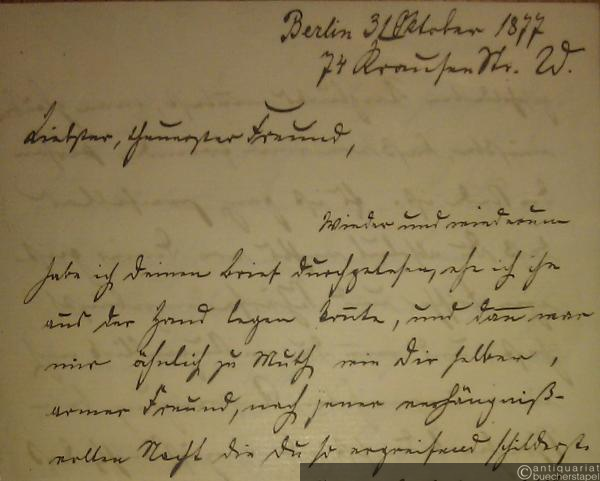 Berlin 31 Oktober 1877
74 Krausen Str. W.
Liebster, theuerster Freund,
Wieder und wiederum
habe ich Deinen Brief durchgelesen, ehe ich ihn
aus der Hand legen konnte, und dann war
mir ähnlich zu Muth wie Dir selber,
armer Freund, nach jener verhängniß-
vollen Nacht die Du so ergreifend schilderst.
© antiquariat
buecherstapel